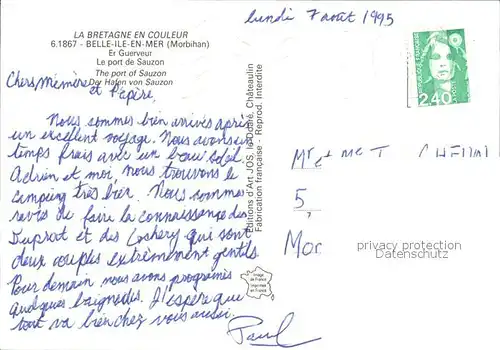 LA BRETAGNE EN COULEUR
6.1867 - BELLE-ILE-EN-MER (Morbihan)
Er Guerveur
Le port de Sauzon
The port of Sauzon
Der Hafen von Sauzon
lundi 7 août 1995
RÉPUBLIQUE FRANÇAISE
2,40
LA POSTE
Chers Mémère et Pépère,
Nous sommes bien arrivés après
un excellent voyage. Nous avons un
temps frais avec un beau soleil.
Adrien et moi, nous trouvons le
camping très bien. Nous sommes
ravis de faire la connaissance des
Duprat et des qui sont
deux couples extrêmement gentils.
Pour demain nous avons programmé
quelques baignades. J'espère que
tout va bien chez vous aussi.
Paul
Editions d'Art JOS, le Doaré, Châteaulin
Fabrication française - Reprod. interdite
Mr et Me
5
Mor
privacy protection
Image
de France
Imprimée
en France